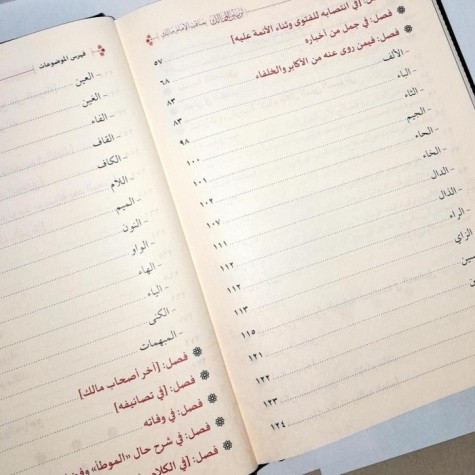 تزيين الممالك بمناقب الإمام مالك
[في انتصابه للفتوى وثناء الأئمة عليه] ٥٧
فصل: في جمل من أخباره ٦٨
فصل: فيمن روى عنه من الأكابر والخلفاء ٨٣
- الألف ٨٣
- الباء ٩٨
- الثاء ١٠٠
- الجيم ١٠١
- الحاء ١٠٢
- الخاء ١٠٧
- الدال ١١١
- الذال ١١٢
- الراء ١١٢
- الزاي ١١٣
١١٥
١٢١
١٢٢
١٢٣
١٢٤
فهرس الموضوعات
- العين
- الغين
- الفاء
- القاف
- الكاف
- اللام
- الميم
- النون
- الواو
- الهاء
- الياء
- الكنى
- المبهمات
فصل: [آخر أصحاب مالك]
فصل: [في تصانيفه]
فصل: في وفاته
فصل: في شرح حال «الموطأ»
فصل: [في الكلام